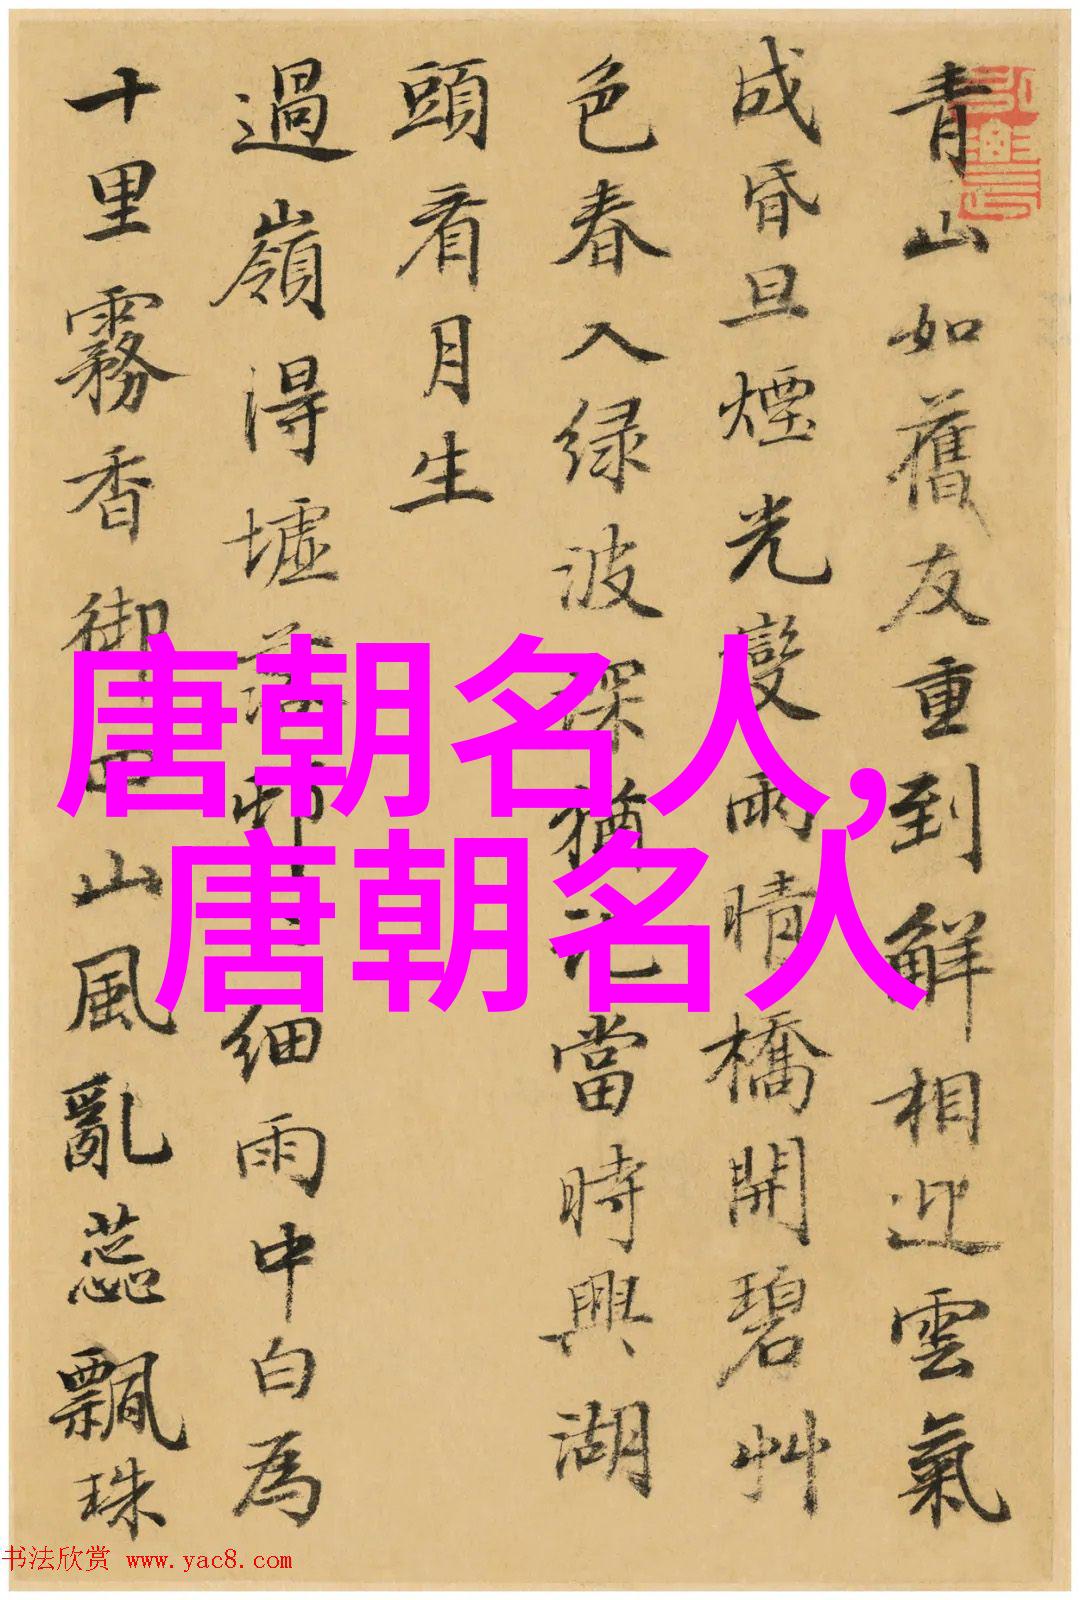 青山如舊友重到解相迎雲氣
成昏旦煙光變雨晴橋開碧艸
色春入緑波深猶記當時興湖
頭看月生
過嶺得墟落邨細雨中白為
十里霧香御山風亂蕊飄珠
唐朝名人,
唐朝名人
书法欣赏 www.yac8.com